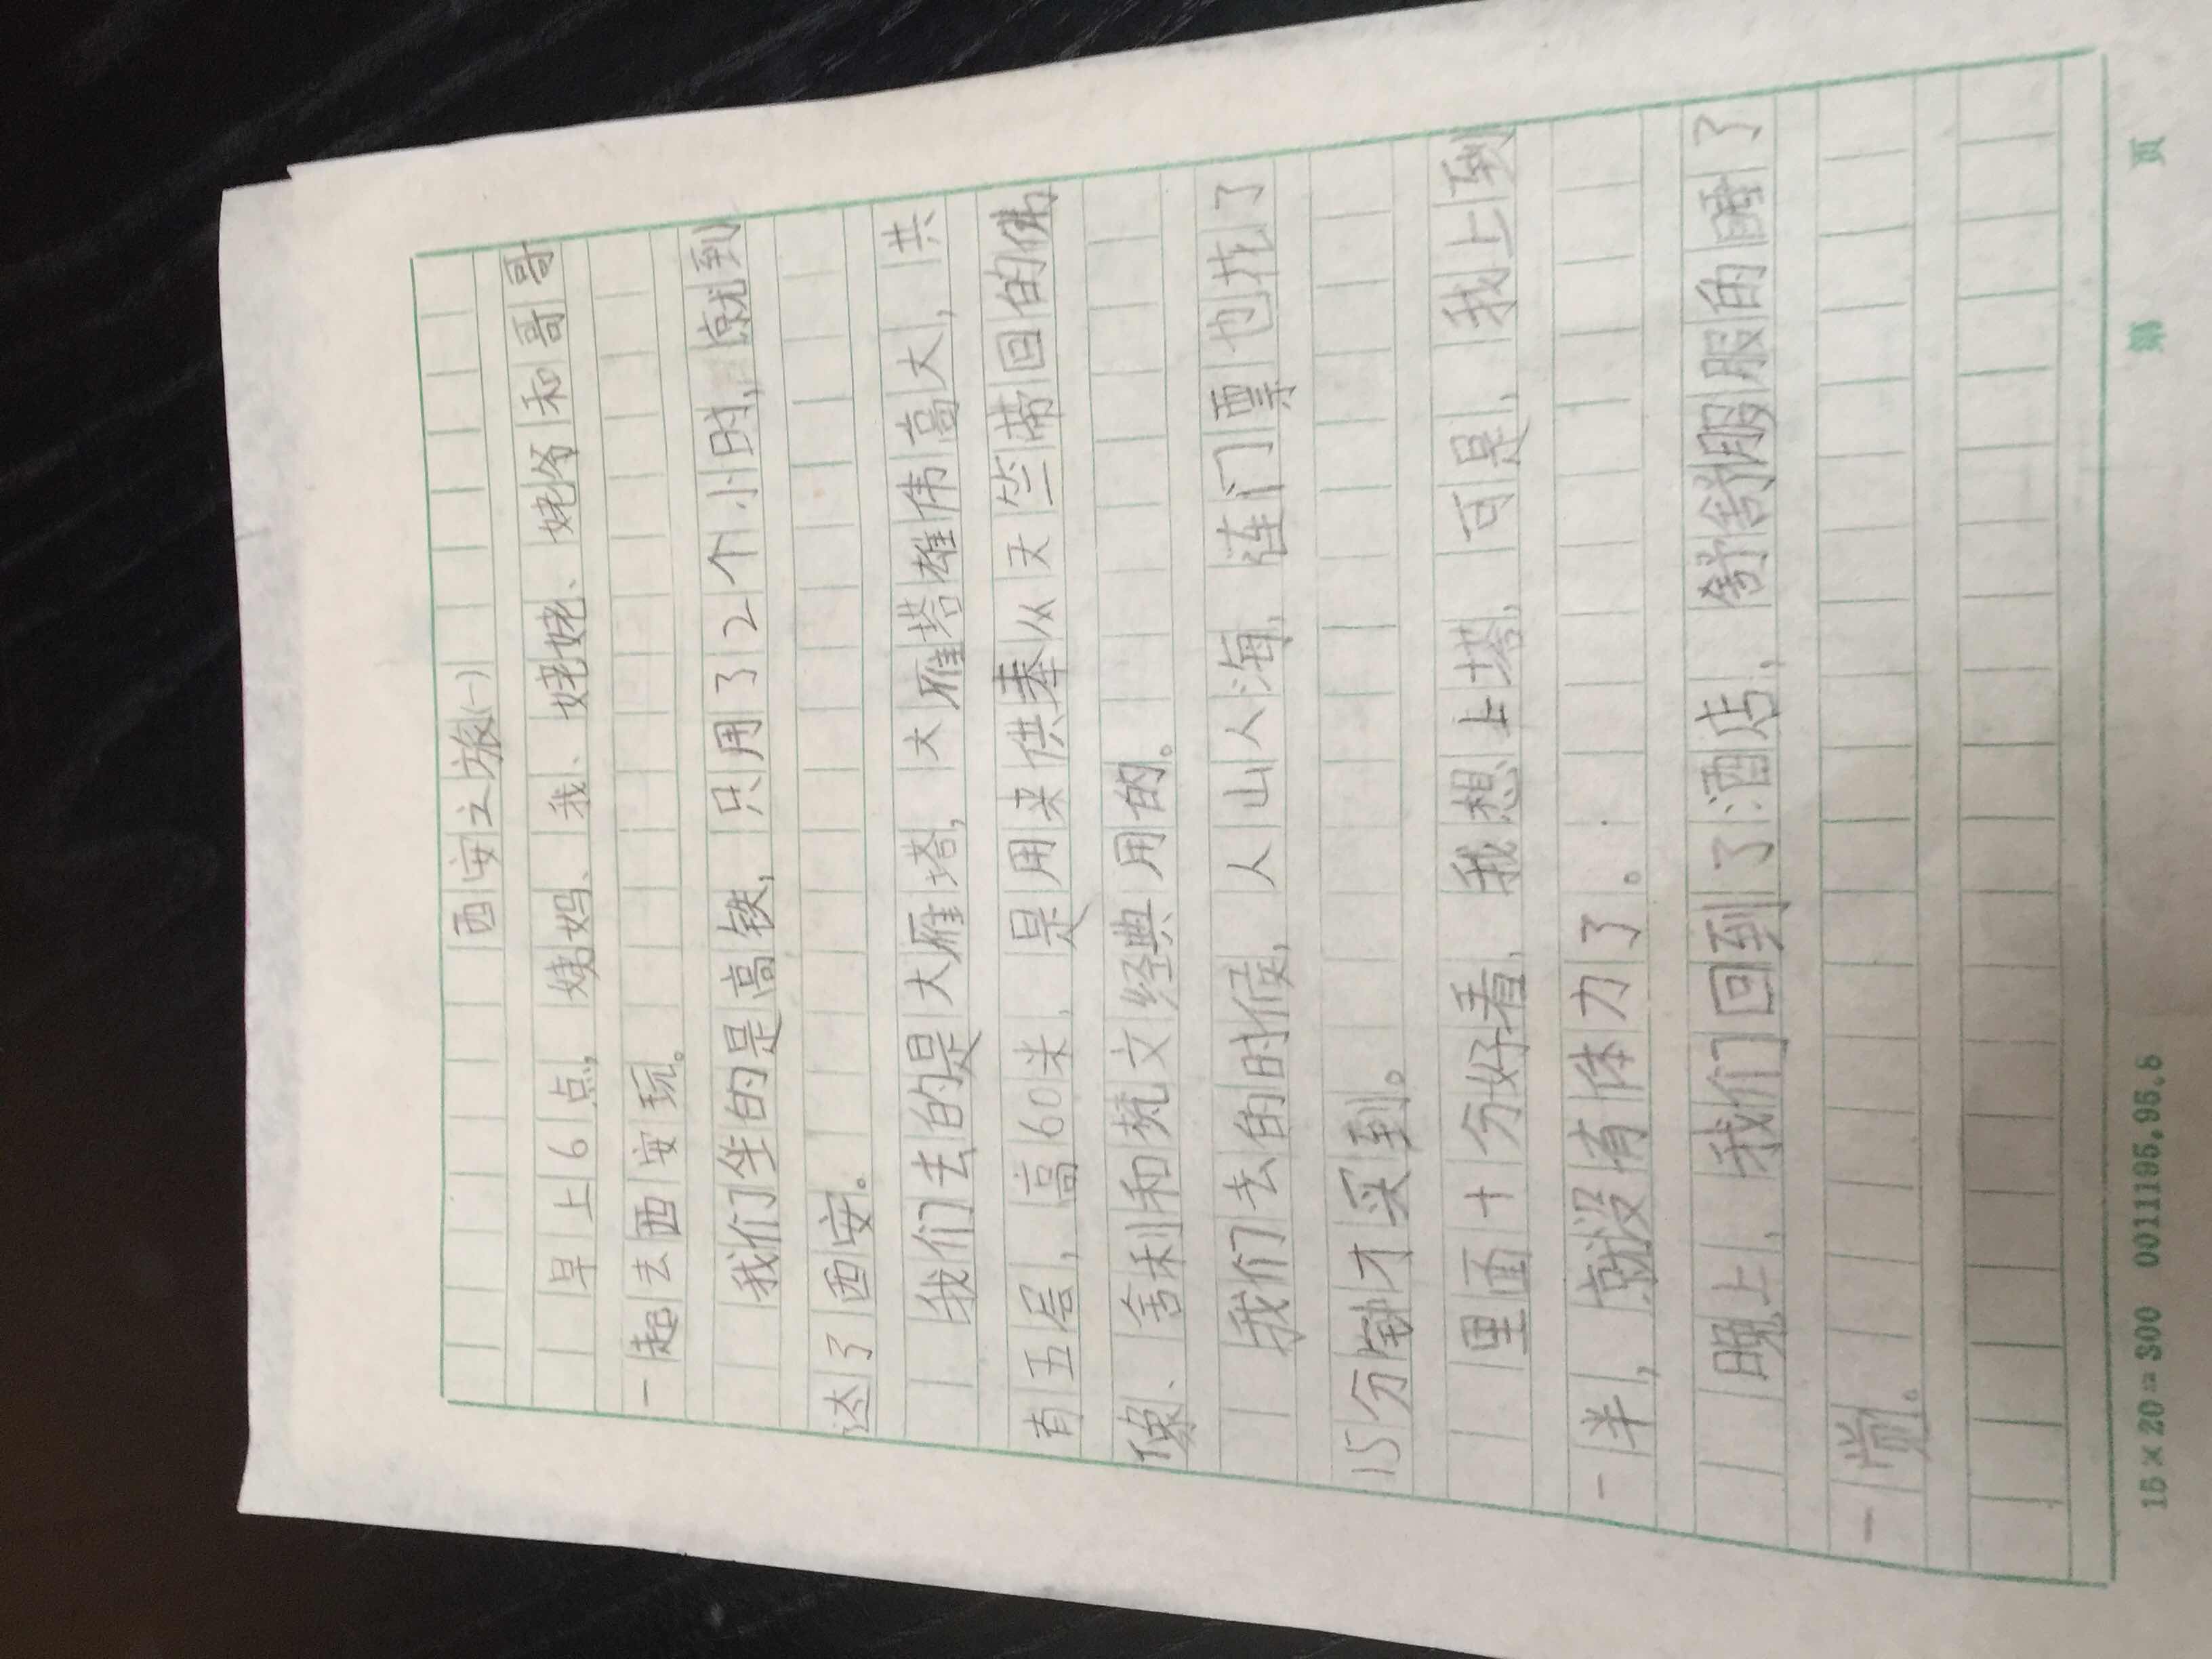 西安之旅(一)
早上6点,姨妈、我、姥姥、姥爷和哥哥
一起去西安玩。
我们坐的是高铁,只用了2个小时,就到
达了西安。
我们去的是大雁塔,大雁塔雄伟高大,共
有五层,高60米,是用来供奉从天竺带回的佛
像、舍利和梵文经典用的。
我们去的时候,人山人海,连门票也花了
15分钟才买到。
里面十分好看,我想上塔,可是,我上到
一半,就没有体力了。
晚上,我们回到了酒店,舒舒服服的睡了
一觉。
15×20=300 001195.95.8 第 页